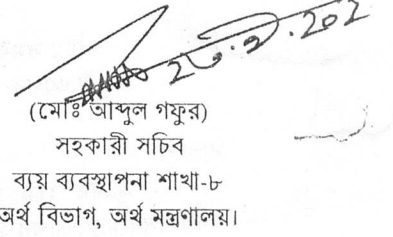 (মোঃ আব্দুল গফুর)
সহকারী সচিব
ব্যয় ব্যবস্থাপনা শাখা-৮
অর্থ বিভাগ, অর্থ মন্ত্রণালয়।